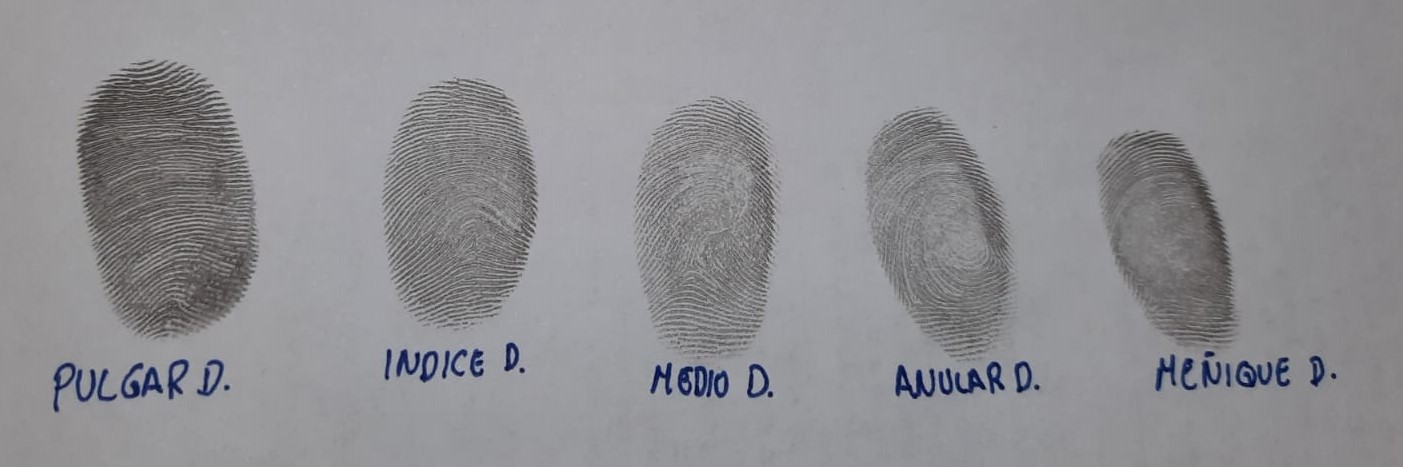 PULGAR D. INDICE D. MEDIO D. ANULAR D. MEÑIQUE D.